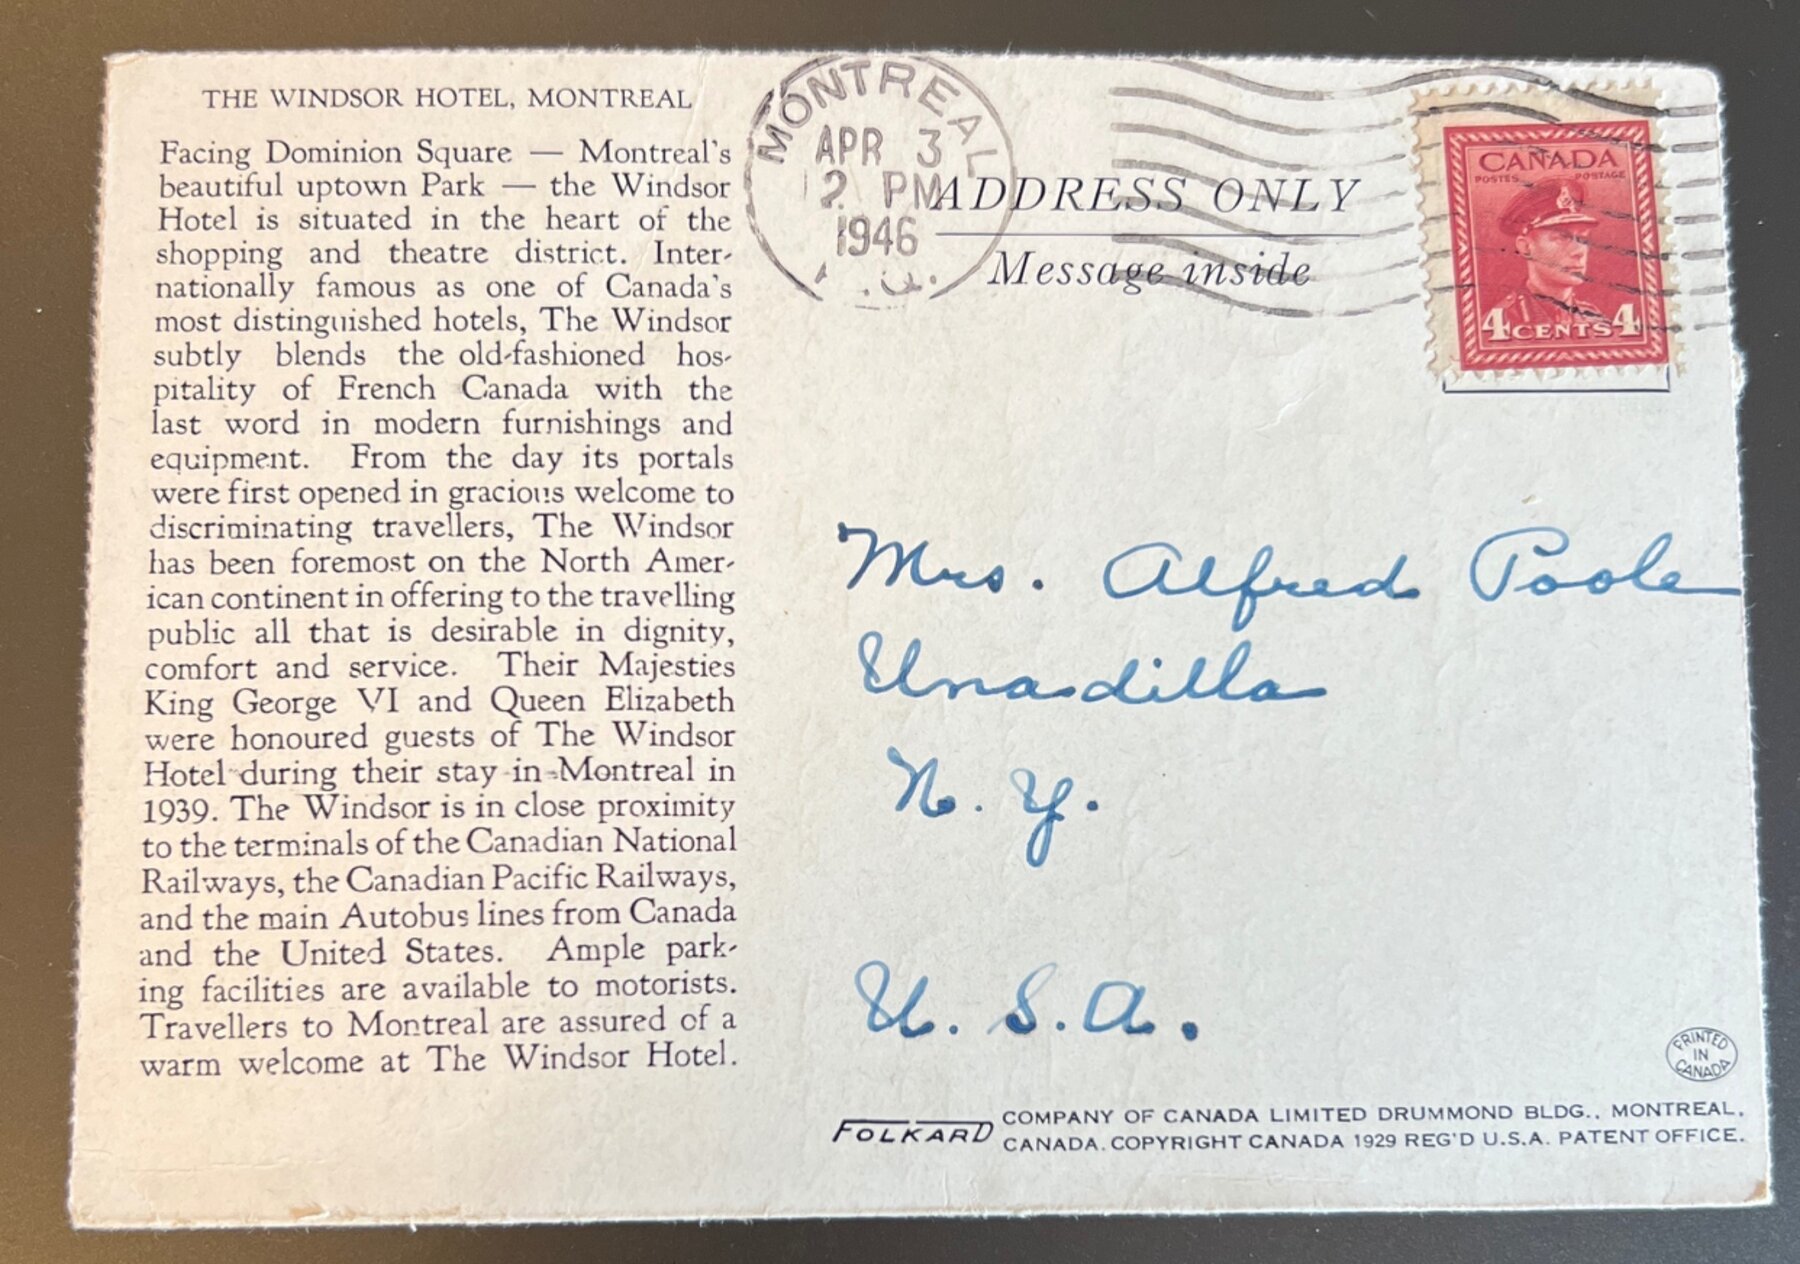 THE WINDSOR HOTEL, MONTREAL
Facing Dominion Square — Montreal's
beautiful uptown Park — the Windsor
Hotel is situated in the heart of the
shopping and theatre district. Inter-
nationally famous as one of Canada's
most distinguished hotels, The Windsor
subtly blends the old-fashioned hos-
pitality of French Canada with the
last word in modern furnishings and
equipment. From the day its portals
were first opened in gracious welcome to
discriminating travellers, The Windsor
has been foremost on the North Amer-
ican continent in offering to the travelling
public all that is desirable in dignity,
comfort and service. Their Majesties
King George VI and Queen Elizabeth
were honoured guests of The Windsor
Hotel during their stay in Montreal in
1939. The Windsor is in close proximity
to the terminals of the Canadian National
Railways, the Canadian Pacific Railways,
and the main Autobus lines from Canada
and the United States. Ample park-
ing facilities are available to motorists.
Travellers to Montreal are assured of a
warm welcome at The Windsor Hotel.
MONTREAL
APR 3
2 PM
1946
ADDRESS ONLY
Message inside
CANADA
POSTES POSTAGE
4 CENTS 4
Mrs. Alfred Poole
Unadilla
N. Y.
U. S. A.
PRINTED
IN
CANADA
FOLKARD COMPANY OF CANADA LIMITED DRUMMOND BLDG., MONTREAL,
CANADA. COPYRIGHT CANADA 1929 REG'D U.S.A. PATENT OFFICE.